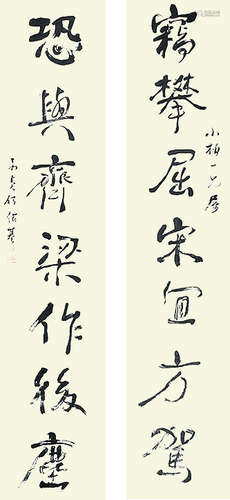 竊攀屈宋宜方駕
小栢一兄屬
恐與齊梁作後塵
子貞何紹基